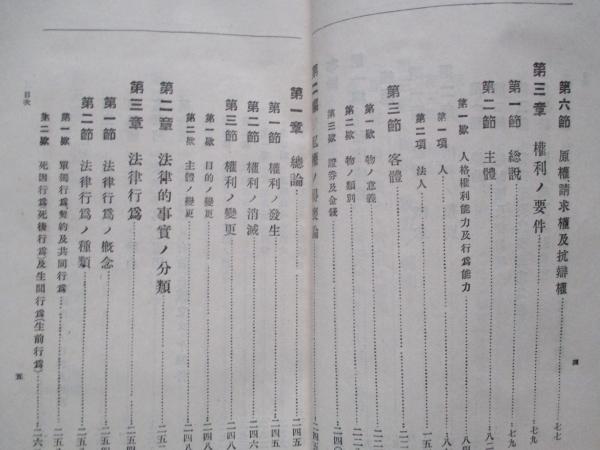 第六節 原權請求權及抗辯權 七七
第三章 權利ノ要件 七七
第一節 總說 七九
第二節 主體 八二
第一款 人格權利能力及行爲能力
第一項 人 八
第二項 法人 一五
第三節 客體
第一款 物ノ意義
第二款 物ノ類別
第三款 證券及金錢 二四〇
第二編 二四五
第一章 總論 二四五
第一節 權利ノ發生 二四五
第二節 權利ノ消滅 二四六
第三節 權利ノ變更 二四八
第一款 目的ノ變更 二四八
第二款 主體ノ變更 二四八
第二章 法律的事實ノ分類 二五
第三章 法律行爲 二五
第一節 法律行爲ノ概念 二五四
第二節 法律行爲ノ種類 二五
第一款 單獨行爲契約及共同行爲 二五
第二款 死因行爲死後行爲及生間行爲(生前行爲) 二六
目次
五